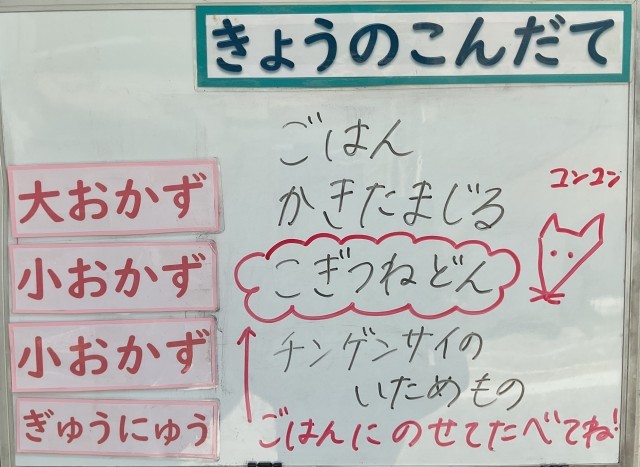 きょうのこんだて
ごはん
大おかず
かきたまじる
コンコン
小おかず
こぎつねどん
小おかず
チンゲンサイの
いためもの
ぎゅうにゅう
ごはんにのせてたべてね!